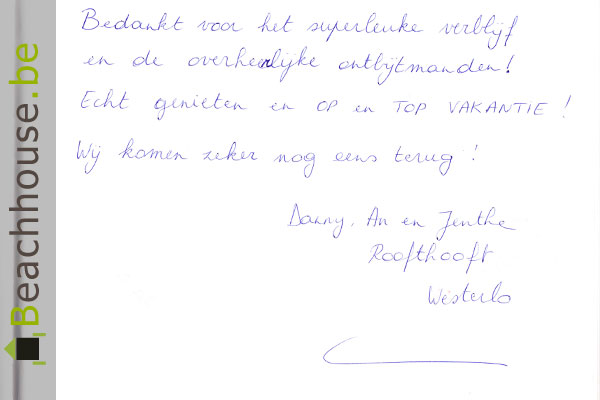 Bedankt voor het superleuke verblijf
en de overheerlijke ontbijtmanden!
Echt genieten en OP en TOP VAKANTIE!
Wij komen zeker nog eens terug!
Danny, An en Jenthe
Roofthooft
Westerlo
Beachhouse.be